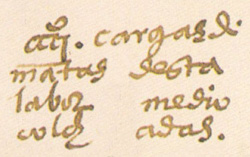 cargas de
mãtas desta
labor medio
colo adas.